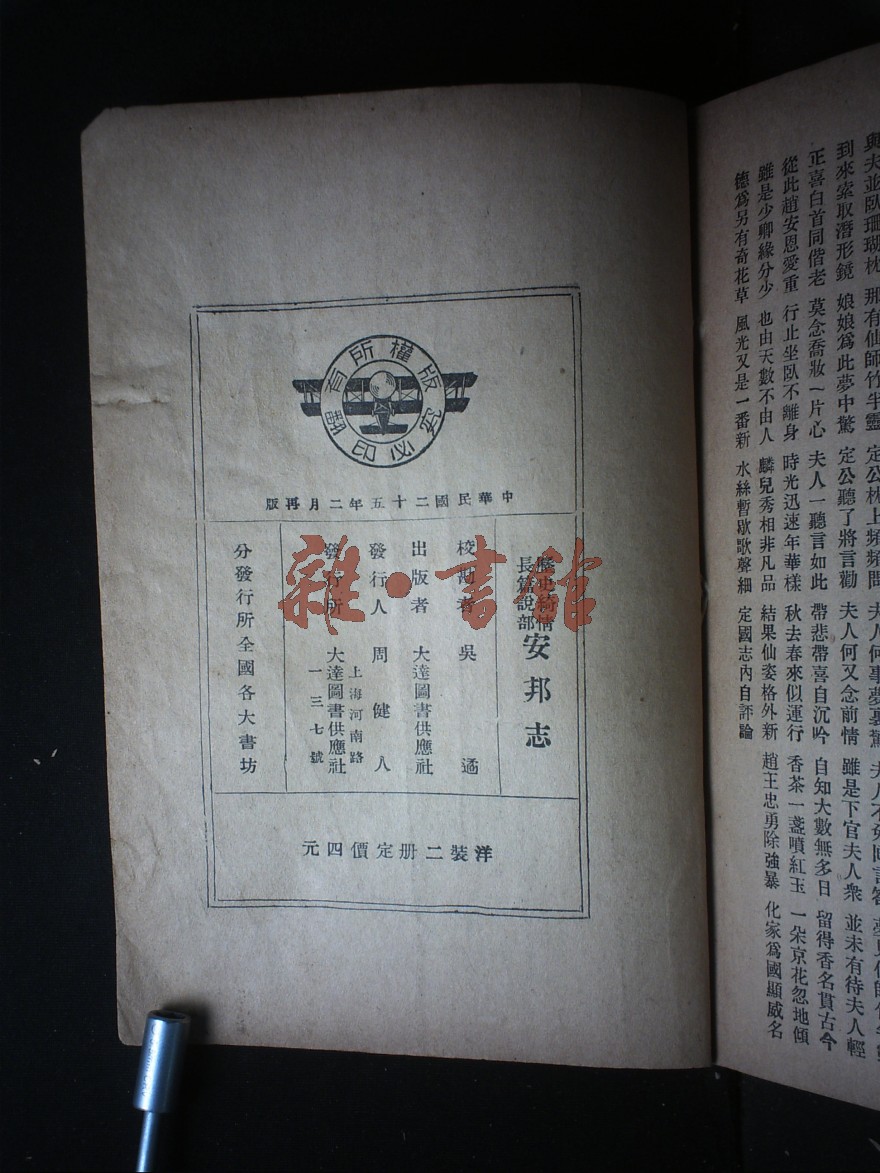 與夫並臥珊瑚枕 那有仙師竹半靈 定公枕上頻頻問 夫人何事夢裏驚
到來索取潛形鏡 娘娘爲此夢中驚 定公聽了將言勸 夫人何又念前情 雖是下官夫人衆 並未有待夫人輕
正喜白首同偕老 莫念喬妝一片心 夫人一聽言如此 帶悲帶喜自沉吟 自知大數無多日 留得香名貫古今
從此趙安恩愛重 行止坐臥不離身 時光迅速年華樣 秋去春來似運行 香茶一盞噴紅玉 一朵京花忽地傾
雖是少卿緣分少 也由天數不由人 麟兒秀相非凡品 結果仙姿格外新 趙王忠勇除強暴 化家爲國顯威名
德爲另有奇花草 風光又是一番新 水絲暫歇歌聲細 定國志內自評論
版權所有
翻印必究
中華民國二十五年二月再版
歷史綺情
長篇說部
安邦志
校勘者 吳遁
出版者 大達圖書供應社
發行人 周健人
上海河南路
發行所 大達圖書供應社
一三七號
分發行所全國各大書坊
洋裝二册定價四元
雜·書館